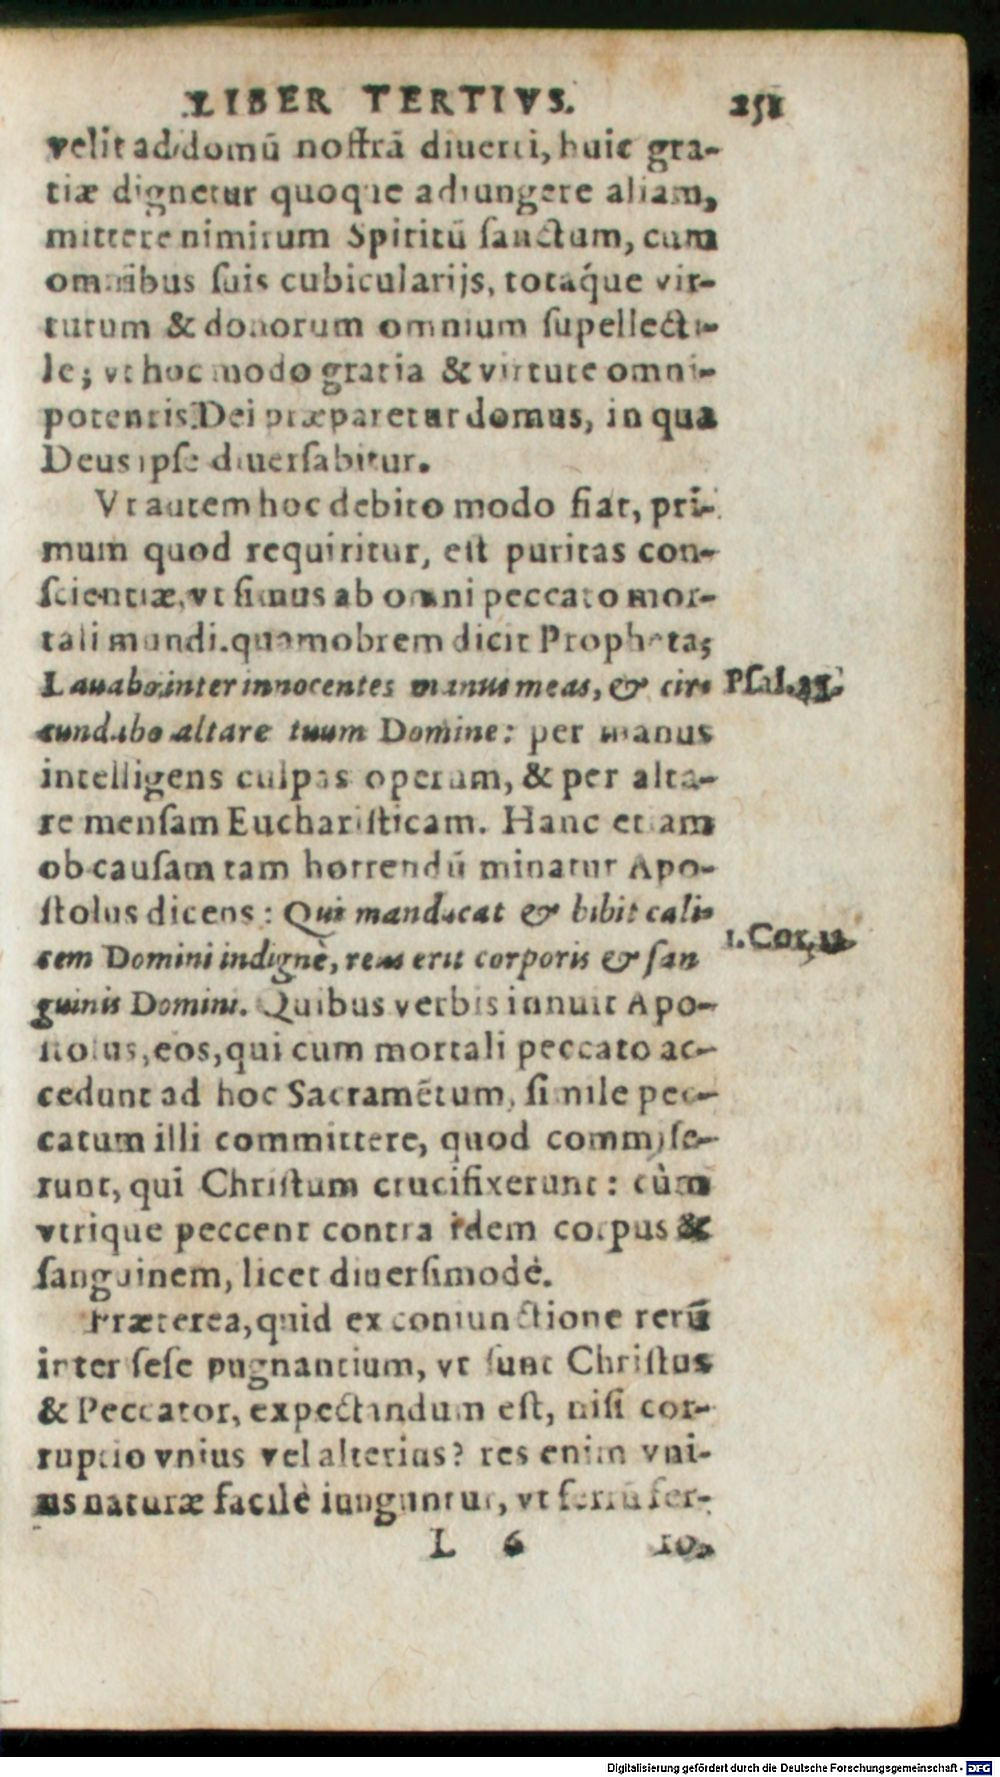 LIBER TERTIVS. 251
velit ad domū nostrā diuerti, huic gra-
tiæ dignetur quoque adiungere aliam,
mittere nimirum Spiritū sanctum, cum
omnibus suis cubicularijs, totáque vir-
tutum & donorum omnium supellecti-
le; vt hoc modo gratia & virtute omni-
potentis Dei præparetur domus, in qua
Deus ipse diuersabitur.
Vt autem hoc debito modo fiat, pri-
mum quod requiritur, est puritas con-
scientiæ, vt simus ab omni peccato mor-
tali mundi. quamobrem dicit Propheta;
Lauabo inter innocentes manus meas, & cir-
cundabo altare tuum Domine: per manus
Psal. 25.
intelligens culpas operum, & per alta-
re mensam Eucharisticam. Hanc etiam
ob causam tam horrendū minatur Apo-
stolus dicens: Qui manducat & bibit cali-
cem Domini indignè, reus erit corporis & san
1. Cor. 11.
guinis Domini. Quibus verbis innuit Apo-
stolus, eos, qui cum mortali peccato ac-
cedunt ad hoc Sacramētum, simile pec-
catum illi committere, quod commise-
runt, qui Christum crucifixerunt: cùm
vtrique peccent contra idem corpus &
sanguinem, licet diuersimodè.
Præterea, quid ex coniunctione rerū
inter sese pugnantium, vt sunt Christus
& Peccator, expectandum est, nisi cor-
ruptio vnius vel alterius? res enim vni-
us naturæ facilè iunguntur, vt ferrū fer-
L 6 ro,
Digitalisierung gefördert durch die Deutsche Forschungsgemeinschaft - DFG